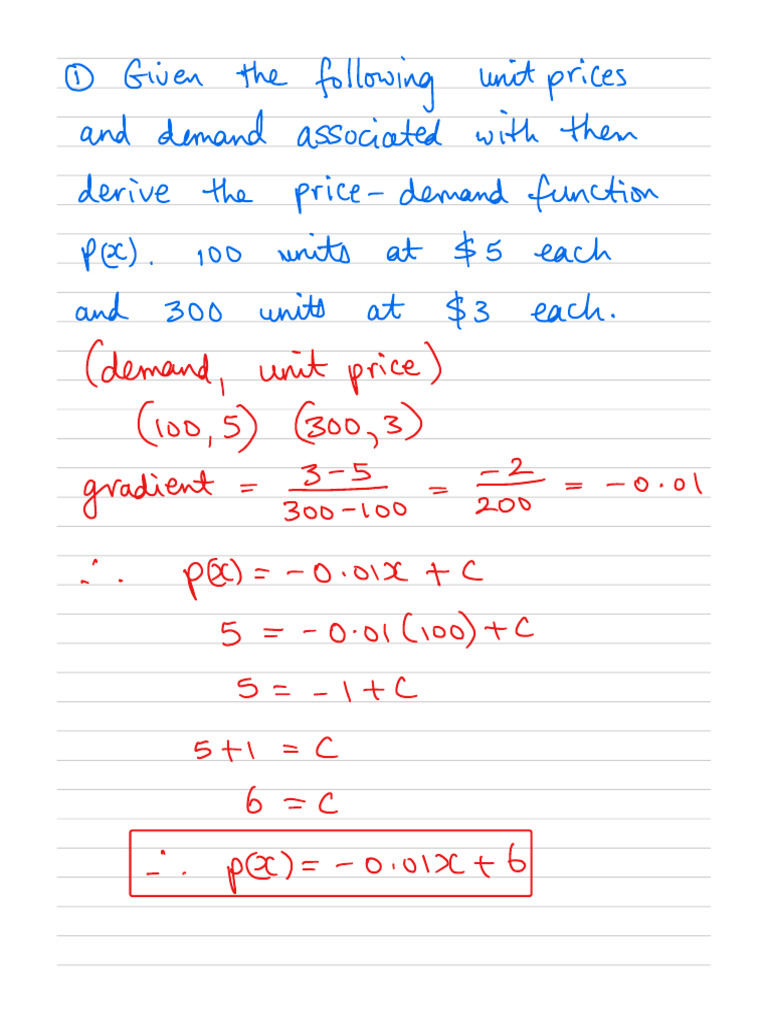 ① Given the following unit prices
and demand associated with them
derive the price-demand function
p(x). 100 units at $5 each
and 300 units at $3 each.
(demand, unit price)
(100, 5) (300, 3)
gradient = 3-5/300-100 = -2/200 = -0.01
∴ p(x) = -0.01x + C
5 = -0.01(100) + C
5 = -1 + C
5+1 = C
6 = C
∴ p(x) = -0.01x + 6